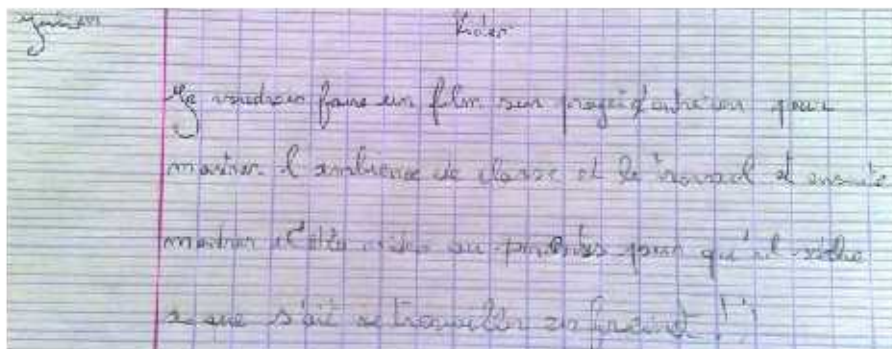 Video
Je voudrais faire un film sur projet d'entre un pour
montrer l'ambience de classe et le travail et ensuite
montrer cette video au parents pour qu'il sache
se que s'ait de travailler en